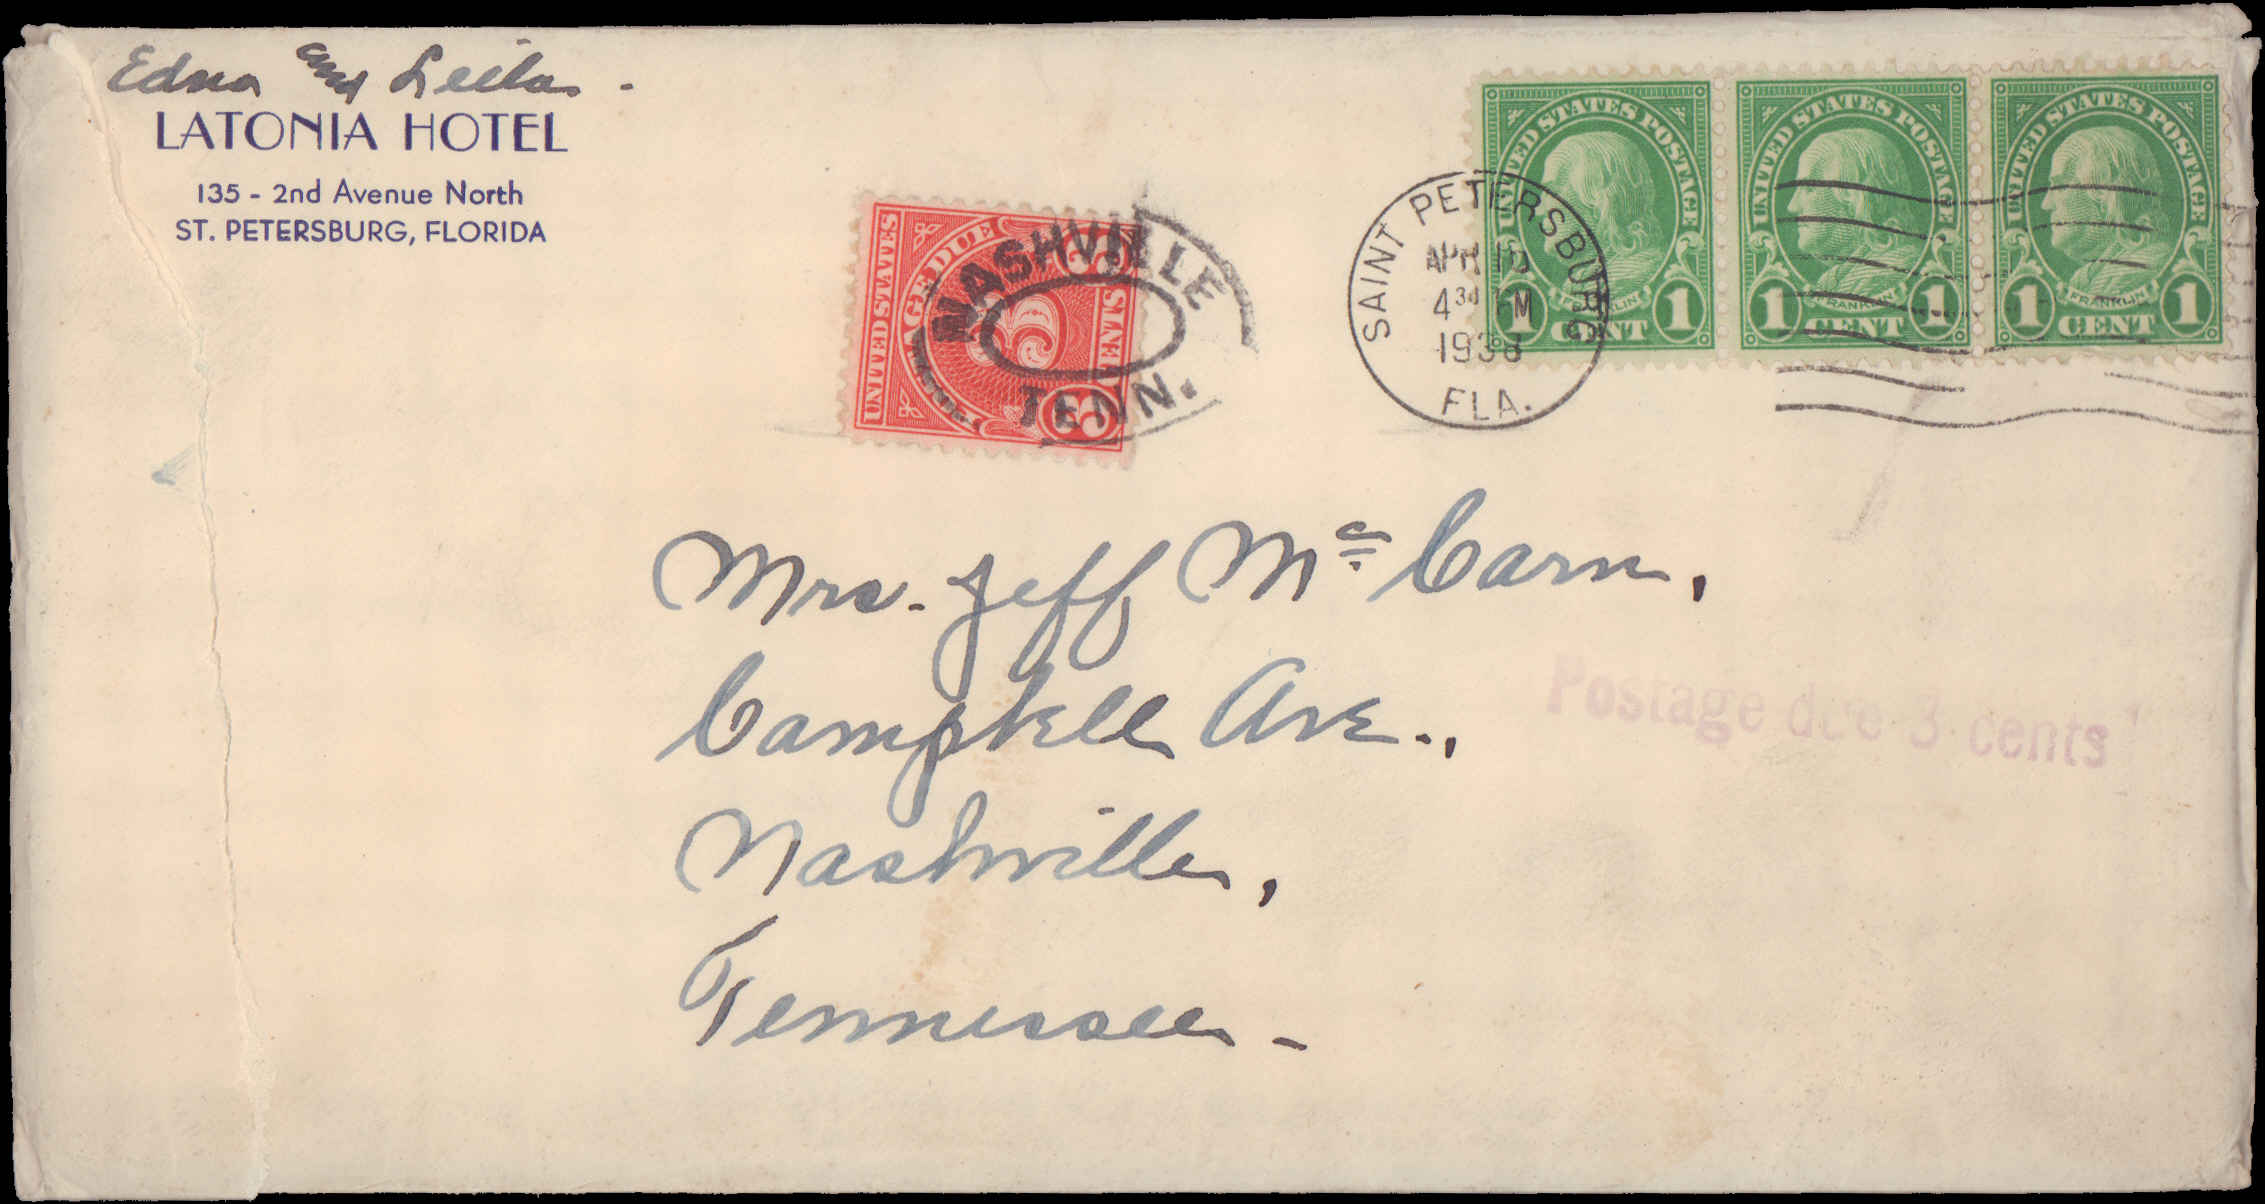 Edna and Leila.
LATONIA HOTEL
135 - 2nd Avenue North
ST. PETERSBURG, FLORIDA
UNITED STATES
POSTAGE DUE
3
3
CENTS
3
NASHVILLE
TENN.
SAINT PETERSBURG
APR
4 30 PM
1938
FLA.
UNITED STATES POSTAGE
FRANKLIN
1 CENT 1
UNITED STATES POSTAGE
FRANKLIN
1 CENT 1
UNITED STATES POSTAGE
FRANKLIN
1 CENT 1
Mrs. Jeff Mc Carn,
Campbell Ave.,
Postage due 3 cents
Nashville,
Tennessee -